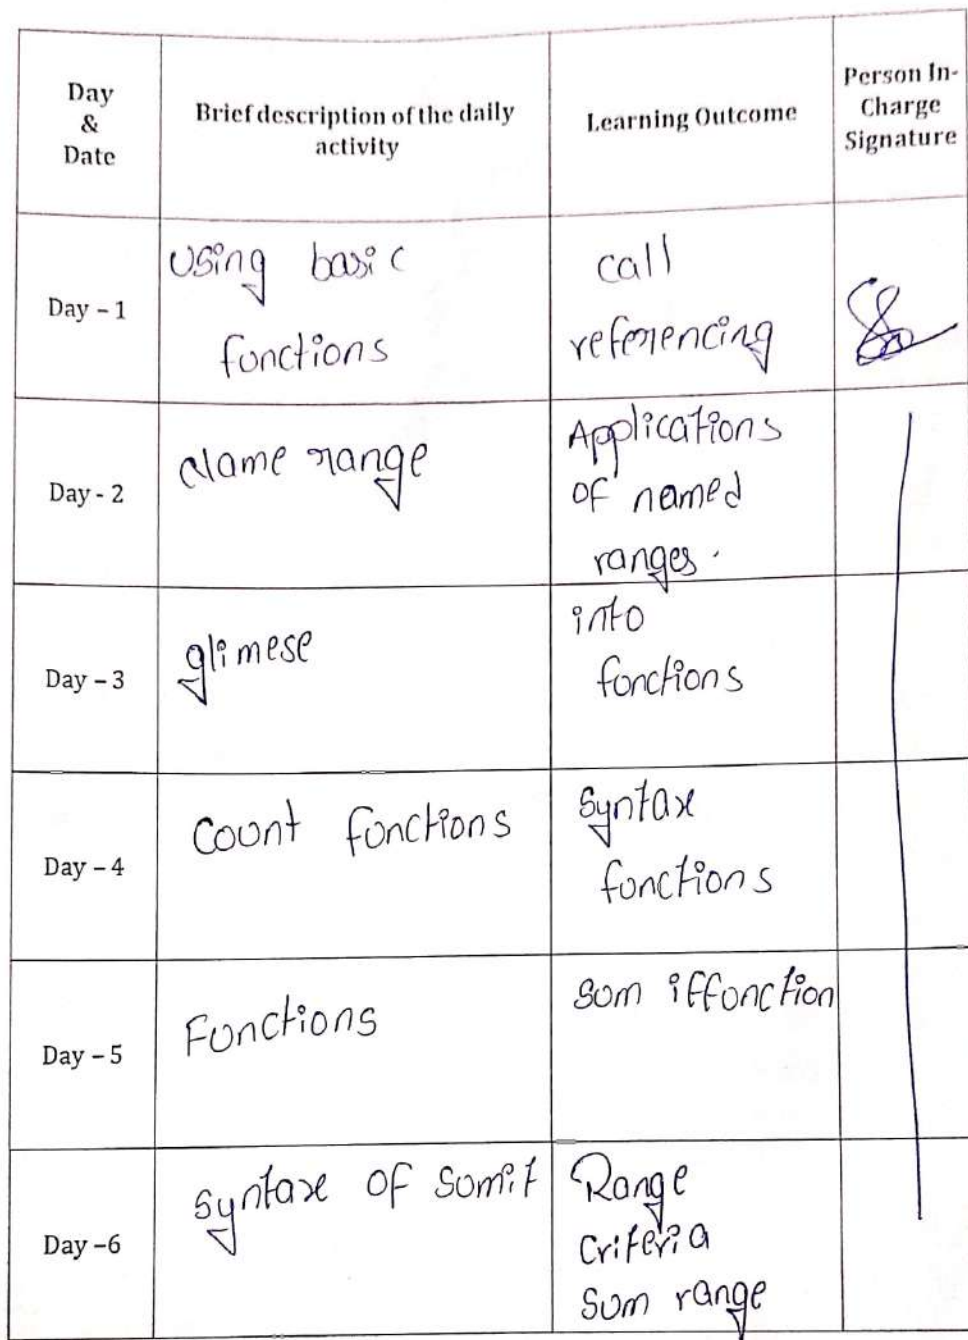 Day
&
Date
Brief description of the daily
activity
Learning Outcome
Person In-
Charge
Signature
Day – 1
Using basic
functions
call
referencing
Day - 2
Name range
Applications
of named
ranges.
Day – 3
glimese
into
functions
Day – 4
Count functions
Syntax
functions
Day – 5
Functions
Sum iffunction
Day –6
Syntax of Sumif
Range
Criteria
Sum range